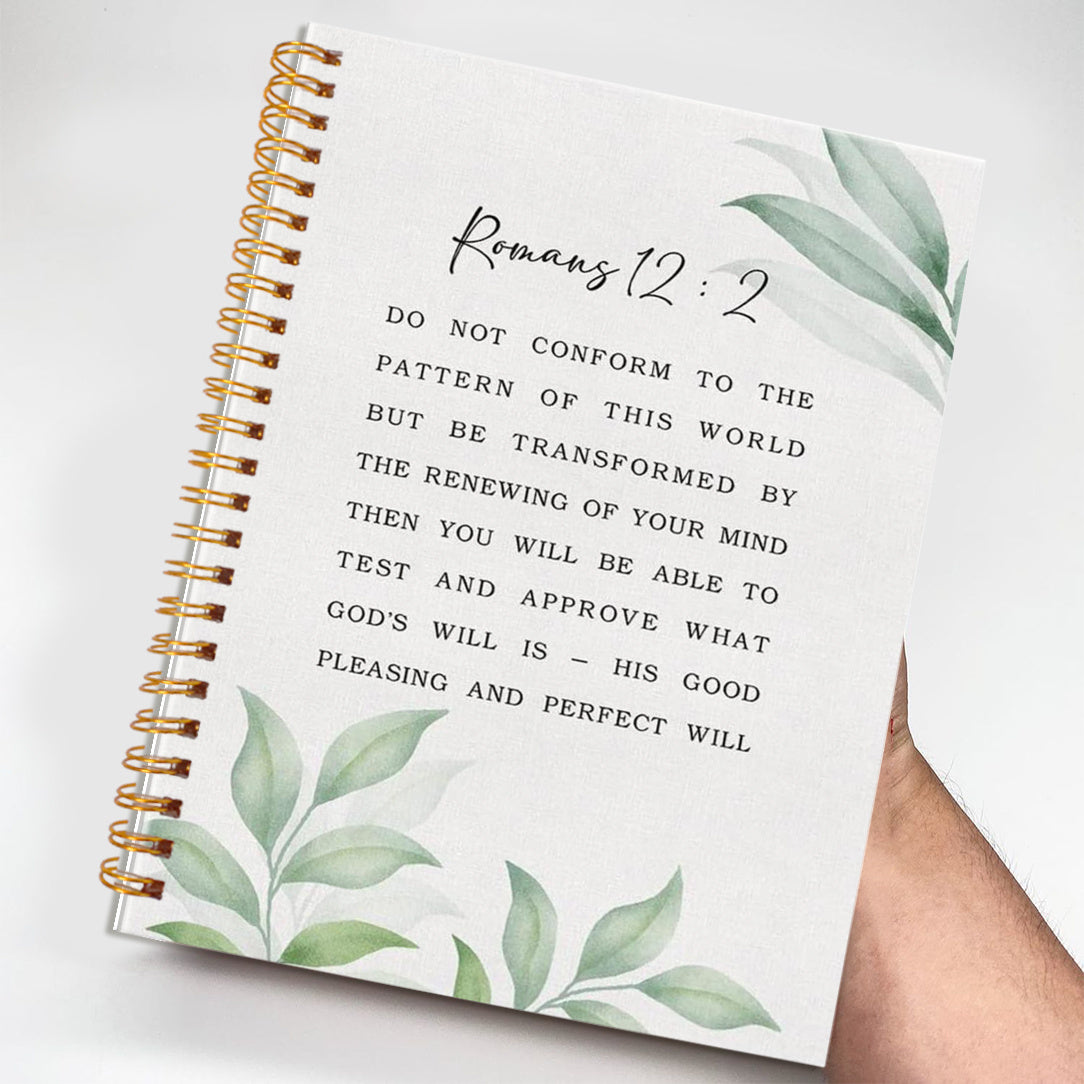 Romans 12 : 2
DO NOT CONFORM TO THE
PATTERN OF THIS WORLD
BUT BE TRANSFORMED BY
THE RENEWING OF YOUR MIND
THEN YOU WILL BE ABLE TO
TEST AND APPROVE WHAT
GOD'S WILL IS – HIS GOOD
PLEASING AND PERFECT WILL